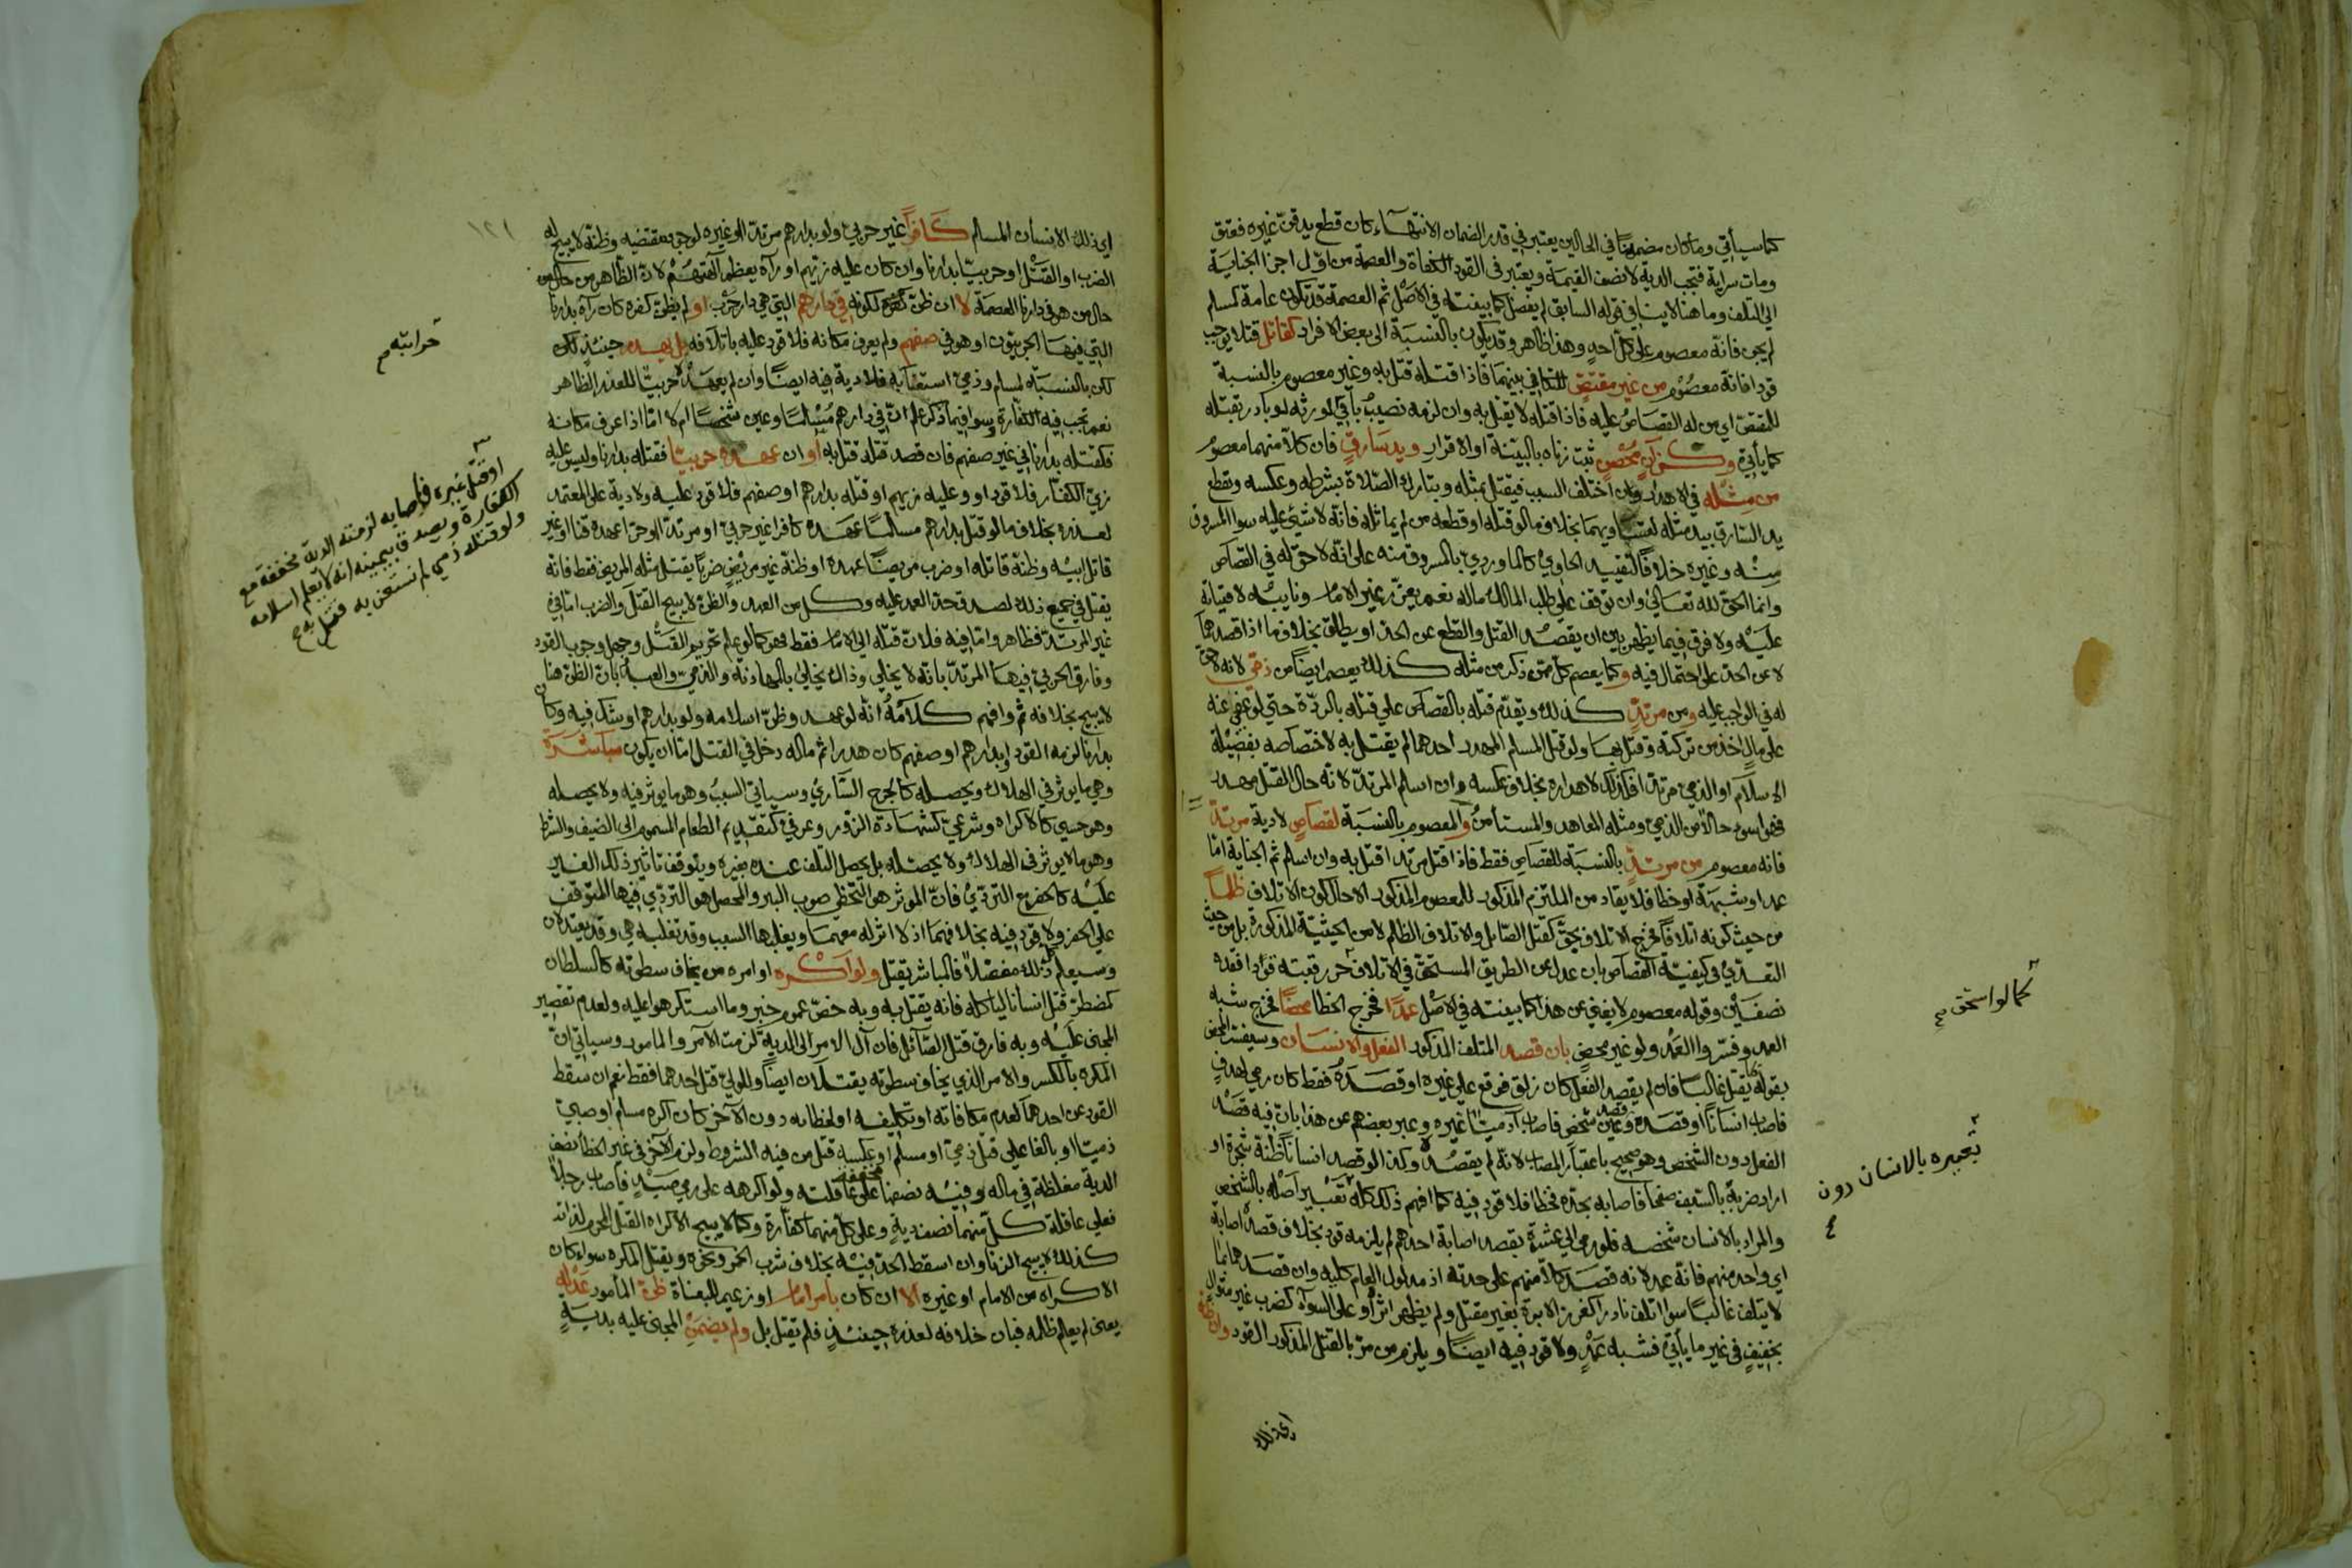 كما سيأتي وما كان مضمونا في الحالين يعتبر في قدر الضمان الانتهاء كان قطع يد قن غيره فعتق
ومات سراية فتجب الدية لا نصف القيمة ويعتبر في القود الكفاة والعصمة من اول اجزا الجناية
الى التلف وما هنا لا ينافي قوله السابق لم يفصل كما بينته في الاصل ثم العصمة قد تكون عامة كمسلم
لم يجن فانه معصوم على كل احد وهذا ظاهر وقد يكون بالنسبة الى بعض الافراد كقاتل قتلا يوجب
قودا فانه معصوم من غير مقتص لتكافي بينهما فاذا قتله قتل به وغير معصوم بالنسبة
للمقتص اي من له القصاص عليه فاذا قتله لا يقتل به وان لزمه نصيب باقي الورثه لو بادر بقتله
كما يأتي وكزان محصن ثبت زناه بالبينة او الاقرار ويد سارق فان كلا منهما معصوم
من مثله في الاهدار وان اختلف السبب فيقتل بمثله وبتارك الصلاة بشرطه وعكسه وتقطع
يد السارق بيد مثله لتساويهما بخلاف ما لو قتله او قطعه من لم يماثله فانه لا شيء عليه سوا المسروق
منه وغيره خلافا لتقييد الحاوي كالماوردي بالمسروق منه على انه لا حق له في القصاص
وانما الحق لله تعالى وان توقف على طلب المالك ماله نعم يعزر غير الامام ونايبه لافتياته
عليه ولا فرق فيما يظهر بين ان يقصد القتل والقطع عن الحد او يطلق بخلاف ما اذا قصدهما
لا عن الحد على احتمال فيه وكما يعصم كل ممن ذكر من مثله كذلك يعصم ايضا من ذمي لانه لا حق
له في الواجب عليه ومن مرتد كذلك ويقدم قتله بالقصاص على قتله بالردة حتى لو عفي عنه
على مال اخذ من تركته وقتل بها ولو قتل المسلم المهدر احدهما لم يقتل به لاختصاصه بفضيلة
الاسلام او الذمي مرتدا فكذلك لاهداره بخلاف عكسه وان اسلم المرتد لانه حال القتل مهدر
فهو اسوء حالا من الذمي ومثله المعاهد والمستأمن والمعصوم بالنسبة لقصاص لا دية مرتد
فانه معصوم من مرتد بالنسبة للقصاص فقط فاذا قتل مرتد اقتل به وان اسلم ثم الجناية اما
عمد او شبهه او خطا فلا يقاد من الملتزم المذكور للمعصوم المذكور الا حال كون الاتلاف ظلما
من حيث كونه اتلافا فخرج الاتلاف بحق كقتل الصائل والاتلاف الظالم لا من الحيثية المذكورة بل من حيث
التعدي في كيفية القصاص بان عدل عن الطريق المستحق في الاتلاف حز رقبته قودا فقده
نصفين وقوله معصوم لا يغني عن هذا كما بينته في الاصل عمدا فخرج الخطا محضا فخرج شبه
العمد وفسروا العمد ولو غير محض بان قصد المتلف المذكور الفعل والانسان وسيفسر المحض
بقوله بما يقتل غالبا فان لم يقصد الفعل كان زلق فوقع على غيره او قصده فقط كان رمى لهدف
فاصاب انسانا او قصده وعين شخص فاصاب آدميا غيره وعبر بعضهم عن هذا بان فيه قصد
الفعل دون الشخص وهو صحيح باعتبار المصاب لانه لم يقصده وكذا لو قصد انسانا ظنه شجرة او
اراد ضربه بالسيف صفحا فاصابه بحده فخطا فلا قود فيه كما افهم ذلك كله تعبير اصله بالشخص
والمراد بالانسان شخصه فلو رمى الى عشرة بقصد اصابة احدهم لم يلزمه قود بخلاف قصد اصابة
اي واحد منهم فانه عمد لانه قصد كلا منهم على حدته اذ مدلول العام كلية وان قصدهما بما
لا يتلف غالبا سوا اتلف نادرا كغرز الابرة بغير مقتل ولم يظهر اثر او على السواء كضرب غير متوال
بخفيف في غير ما يأتي فشبه عمد ولا قود فيه ايضا ويلزم من مر بالقتل المذكور القود وان ظنه
اي ذلك
كما لو استحق
تعبيره بالانسان دون
١٢١
اي ذلك الانسان المسلم كافرا غير حربي ولو بدارهم مرتدا او غيره لوجود مقتضيه وظنه لا يبيح له
الضرب او القتل او حربيا بدارنا وان كان عليه زيهم او رآه يعظم آلهتهم لان الظاهر من حال من
حال من هو في دارنا العصمة لا ان ظن كفره لكونه في دارهم التي هي دار حرب او لم يظن كفره كان رآه بدارنا
التي فيها الحربيون او هو في صفهم ولم يعرف مكانه فلا قود عليه باتلافه بل يهدر حينئذ لكن
لكن بالنسبة لمسلم وذمي استعنا به فلا دية فيه ايضا وان لم يعهده حربيا للعذر الظاهر
نعم تجب فيه الكفارة وسوا فيما ذكر علم ان في دارهم مسلما وعين شخصا ام لا اما اذا عرف مكانه
فكقتله بدارنا في غير صفهم فان قصد قتله قتل به او ان عهده حربيا فقتله بدارنا وليس عليه
زي الكفار فلا قود او وعليه زيهم او قتله بدارهم او صفهم فلا قود عليه ولا دية على المعتمد
لعذره بخلاف ما لو قتل بدارهم مسلما عهده كافرا غير حربي او مرتدا او حرا عهده قنا او غير
قاتل ابيه وظنه قاتله او ضرب مريضا عهده او ظنه غير مريض ضربا يقتل مثله المريض فقط فانه
يقتل في جميع ذلك لصدق حد العمد عليه وكل من العهد والظن لا يبيح القتل والضرب اما في
غير المرتد فظاهر واما فيه فلان قتله الى الامام فقط فهو كما لو علم تحريم القتل وجهل وجوب القود
وفارق الحربي فيها المرتد بانه لا يخلى وذاك يخلى بالمهادنة والذمي والعبد بان الظن هنا
لا يبيح بخلافه ثم وافهم كلامه انه لو عهد وظن اسلامه ولو بدارهم او شك فيه وكان
بدارنا لزمه القود او بدارهم او صفهم كان هدرا ثم ماله دخل في القتل اما ان يكون مباشرة
وهي ما يوثر في الهلاك ويحصله كالجرح الساري وسياتي السبب وهو ما يوثر فيه ولا يحصله
وهو حسي كالاكراه وشرعي كشهادة الزور وعرفي كتقديم الطعام المسموم الى الضيف والشرط
وهو ما لا يوثر في الهلاك ولا يحصله بل يحصل التلف عنده بغيره ويتوقف تاثير ذلك الغير
عليه كالحفر مع التردي فان الموثر هو التخطي صوب البير والمحصل هو التردي فيها المتوقف
على الحفر ولا قود فيه بخلافهما اذ لا اثر له معهما ويغلبها السبب وقد تغلبه هي وقد يعتدلان
وسيعلم ذلك مفصلا فالمباشر يقتل ولو اكره او امره من يخاف سطوته كالسلطان
كمضطر قتل انسانا لياكله فانه يقتل به وبه خص عموم خبر وما استكرهوا عليه ولعدم تقصير
المجني عليه وبه فارق قتل الصائل فان آل الامر الى الدية لزمت الآمر والمامور وسياتي ان
المكره بالكسر والامر الذي يخاف سطوته يقتلان ايضا وللولي قتل احدهما فقط نعم ان سقط
القود عن احدهما لعدم مكافاته او تكليفه او لخطائه دون الآخر كان اكره مسلم او صبي
ذميا او بالغا على قتل ذمي او مسلم او عكسه قتل من فيه الشروط ولزم الآخر في غير الخطأ نصف
الدية مغلظة في ماله وفيه نصفها مخففة على عاقلته ولو اكرهه على رمي صيد فاصاب رجلا
فعلى عاقلة كل منهما نصف دية وعلى كل منهما كفارة وكما لا يبيح الاكراه القتل المحرم لذاته
كذلك لا يبيح الزنا وان اسقط الحد فيه بخلاف شرب الخمر ونحوه ويقتل المكره سواء كان
الاكراه من الامام او غيره الا ان كان بامر امام او زعيم للبغاة ظن المأمور عدله
يعني لم يعلم ظلمه فبان خلافه لعذره حينئذ فلم يقتل بل ولم يضمن المجني عليه بدية
حرابته م
او قتل غيره فاصابه لزمته الدية مخففة مع
الكفارة ويصدق بيمينه انه لا يعلم اسلامه
ولو قتله ذمي لم نستعن به قتل به